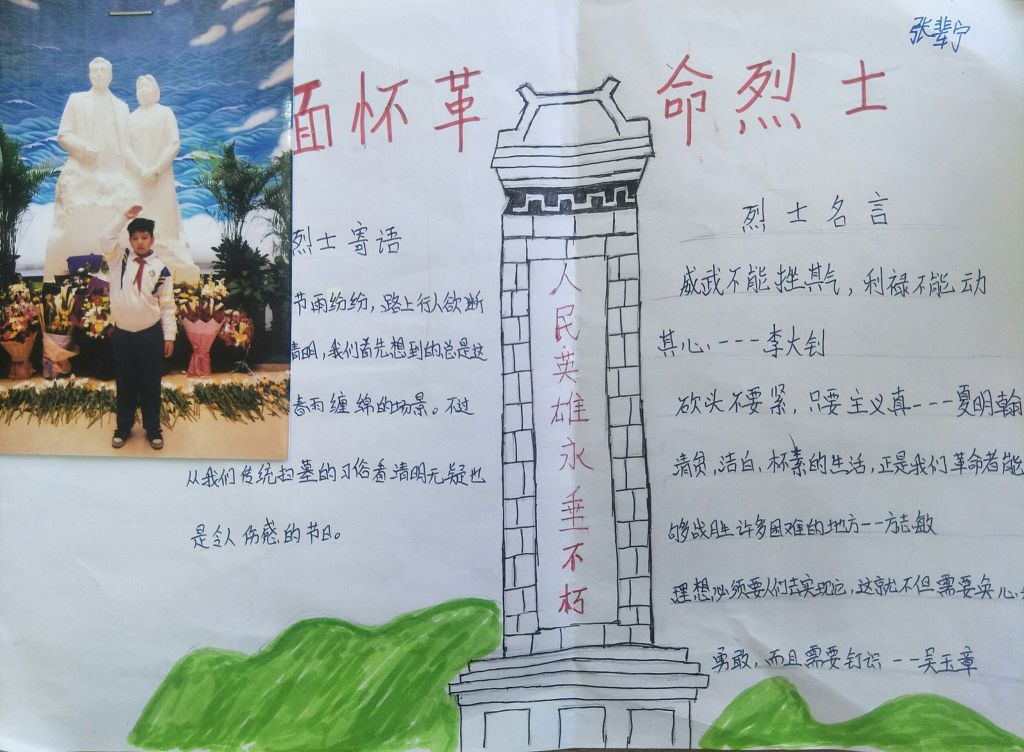 张辈宁
面怀革命烈士
烈士寄语
节雨纷纷，路上行人欲断
清明，我们首先想到的总是这
春雨缠绵的场景。不过
从我们传统扫墓的习俗看清明无疑也
是令人伤感的节日。
人民英雄永垂不朽
烈士名言
威武不能挫其气，利禄不能动
其心、---李大钊
砍头不要紧，只要主义真---夏明翰
清贫，洁白，朴素的生活，正是我们革命者能
够战胜许多困难的地方--方志敏
理想必须要人们去实现它，这就不但需要决心
勇敢，而且需要知识--吴玉章